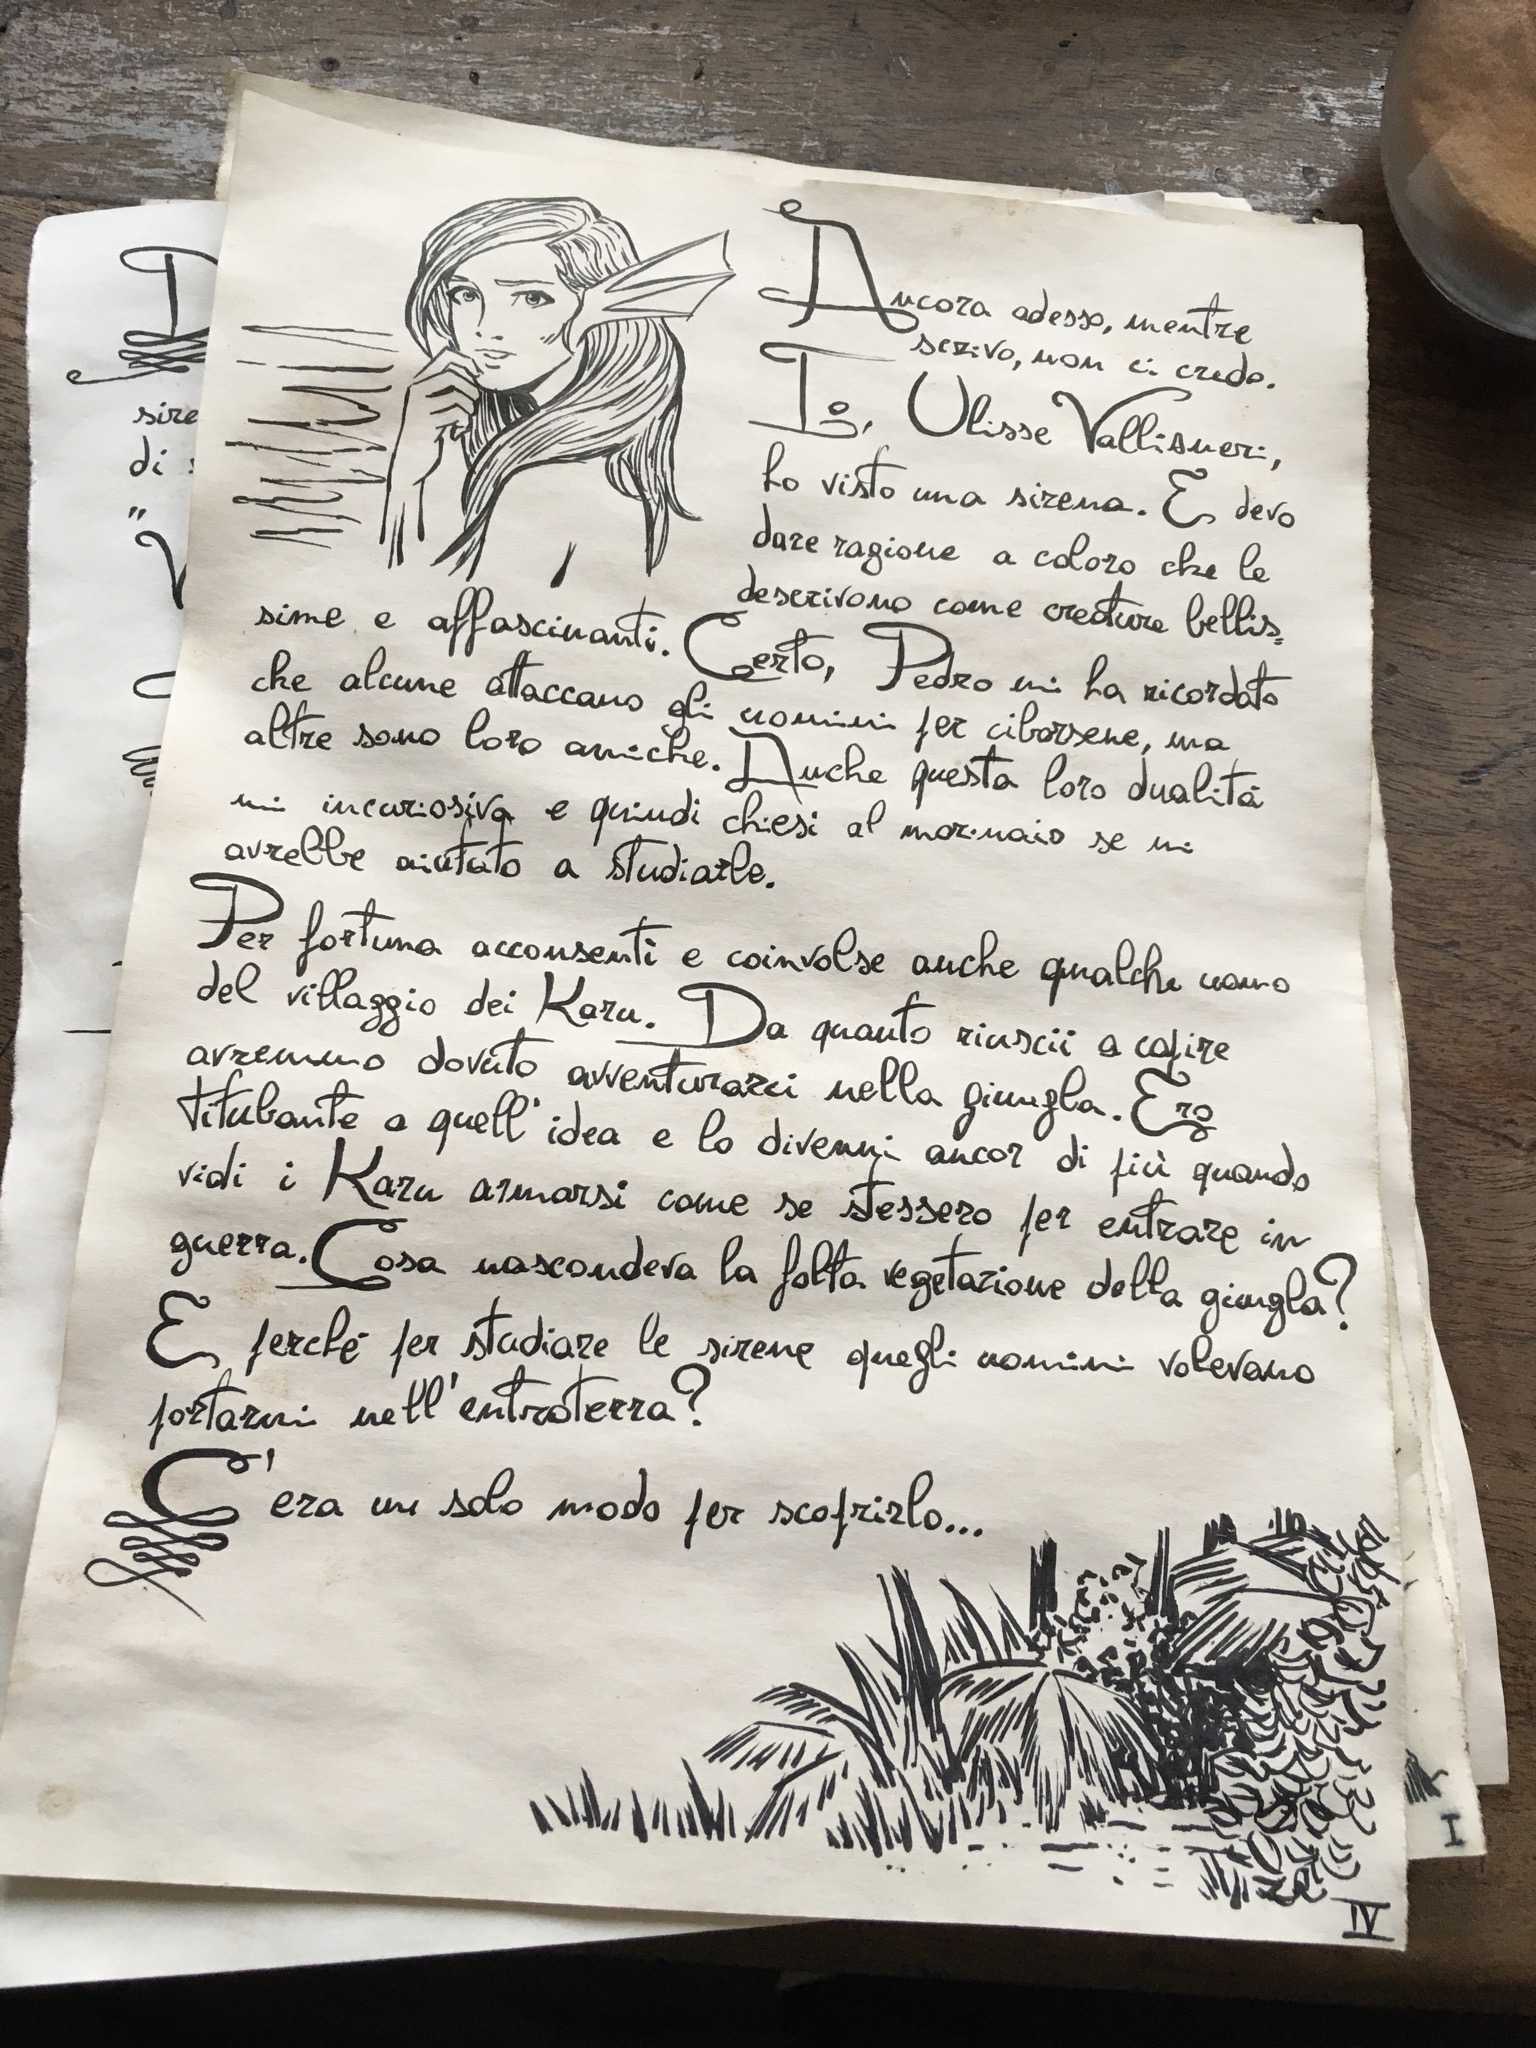 Ancora adesso, mentre
scrivo, non ci credo.
Io, Ulisse Vallisneri,
ho visto una sirena. E devo
dare ragione a coloro che le
descrivono come creature bellis=
sime e affascinanti. Certo, Pedro mi ha ricordato
che alcune attaccano gli uomini per cibarsene, ma
altre sono loro amiche. Anche questa loro dualità
mi incuriosiva e quindi chiesi al marinaio se mi
avrebbe aiutato a studiarle.
Per fortuna acconsentì e coinvolse anche qualche uomo
del villaggio dei Karu. Da quanto riuscii a capire
avremmo dovuto avventurarci nella giungla. Ero
titubante a quell'idea e lo divenni ancor di più quando
vidi i Karu armarsi come se stessero per entrare in
guerra. Cosa nascondeva la folta vegetazione della giungla?
E perché per studiare le sirene quegli uomini volevano
portarmi nell'entroterra?
C'era un solo modo per scoprirlo...
IV
D
sire
di
"V
I